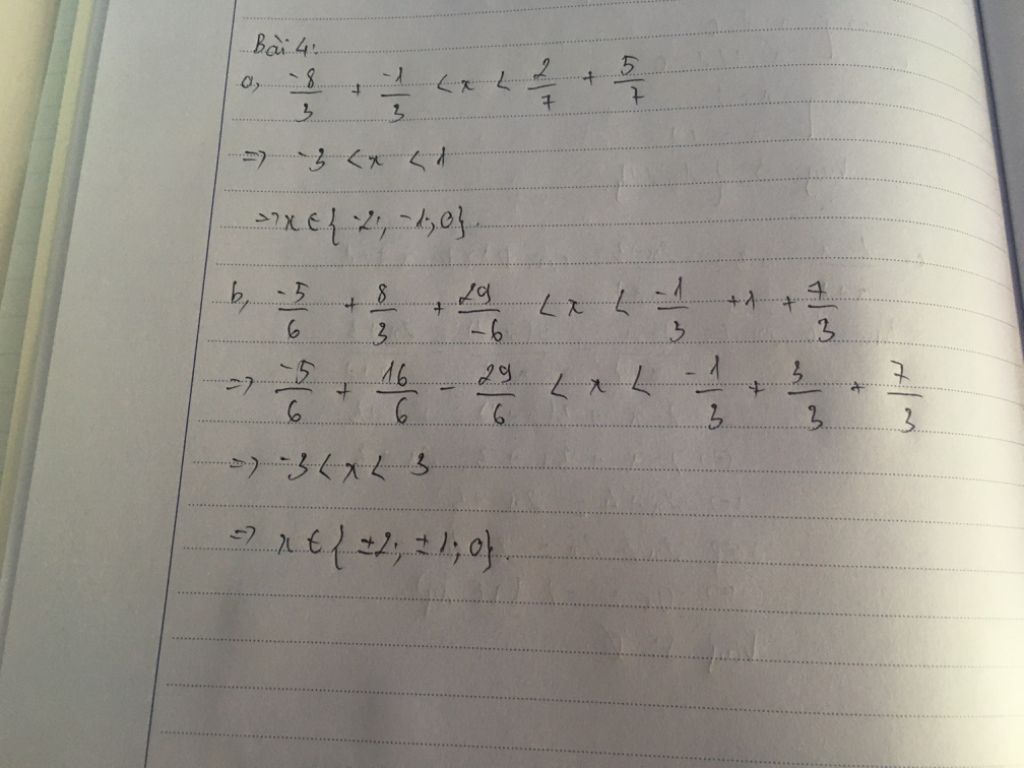 Bài 4:
a, -8/3 + -1/3 < x < 2/7 + 5/7
=> -3 < x < 1
=> x ∈ { -2; -1; 0}.
b, -5/6 + 8/3 + 29/-6 < x < -1/3 + 1 + 7/3
=> -5/6 + 16/6 - 29/6 < x < -1/3 + 3/3 + 7/3
=> -3 < x < 3
=> x ∈ { ±2; ±1; 0}.